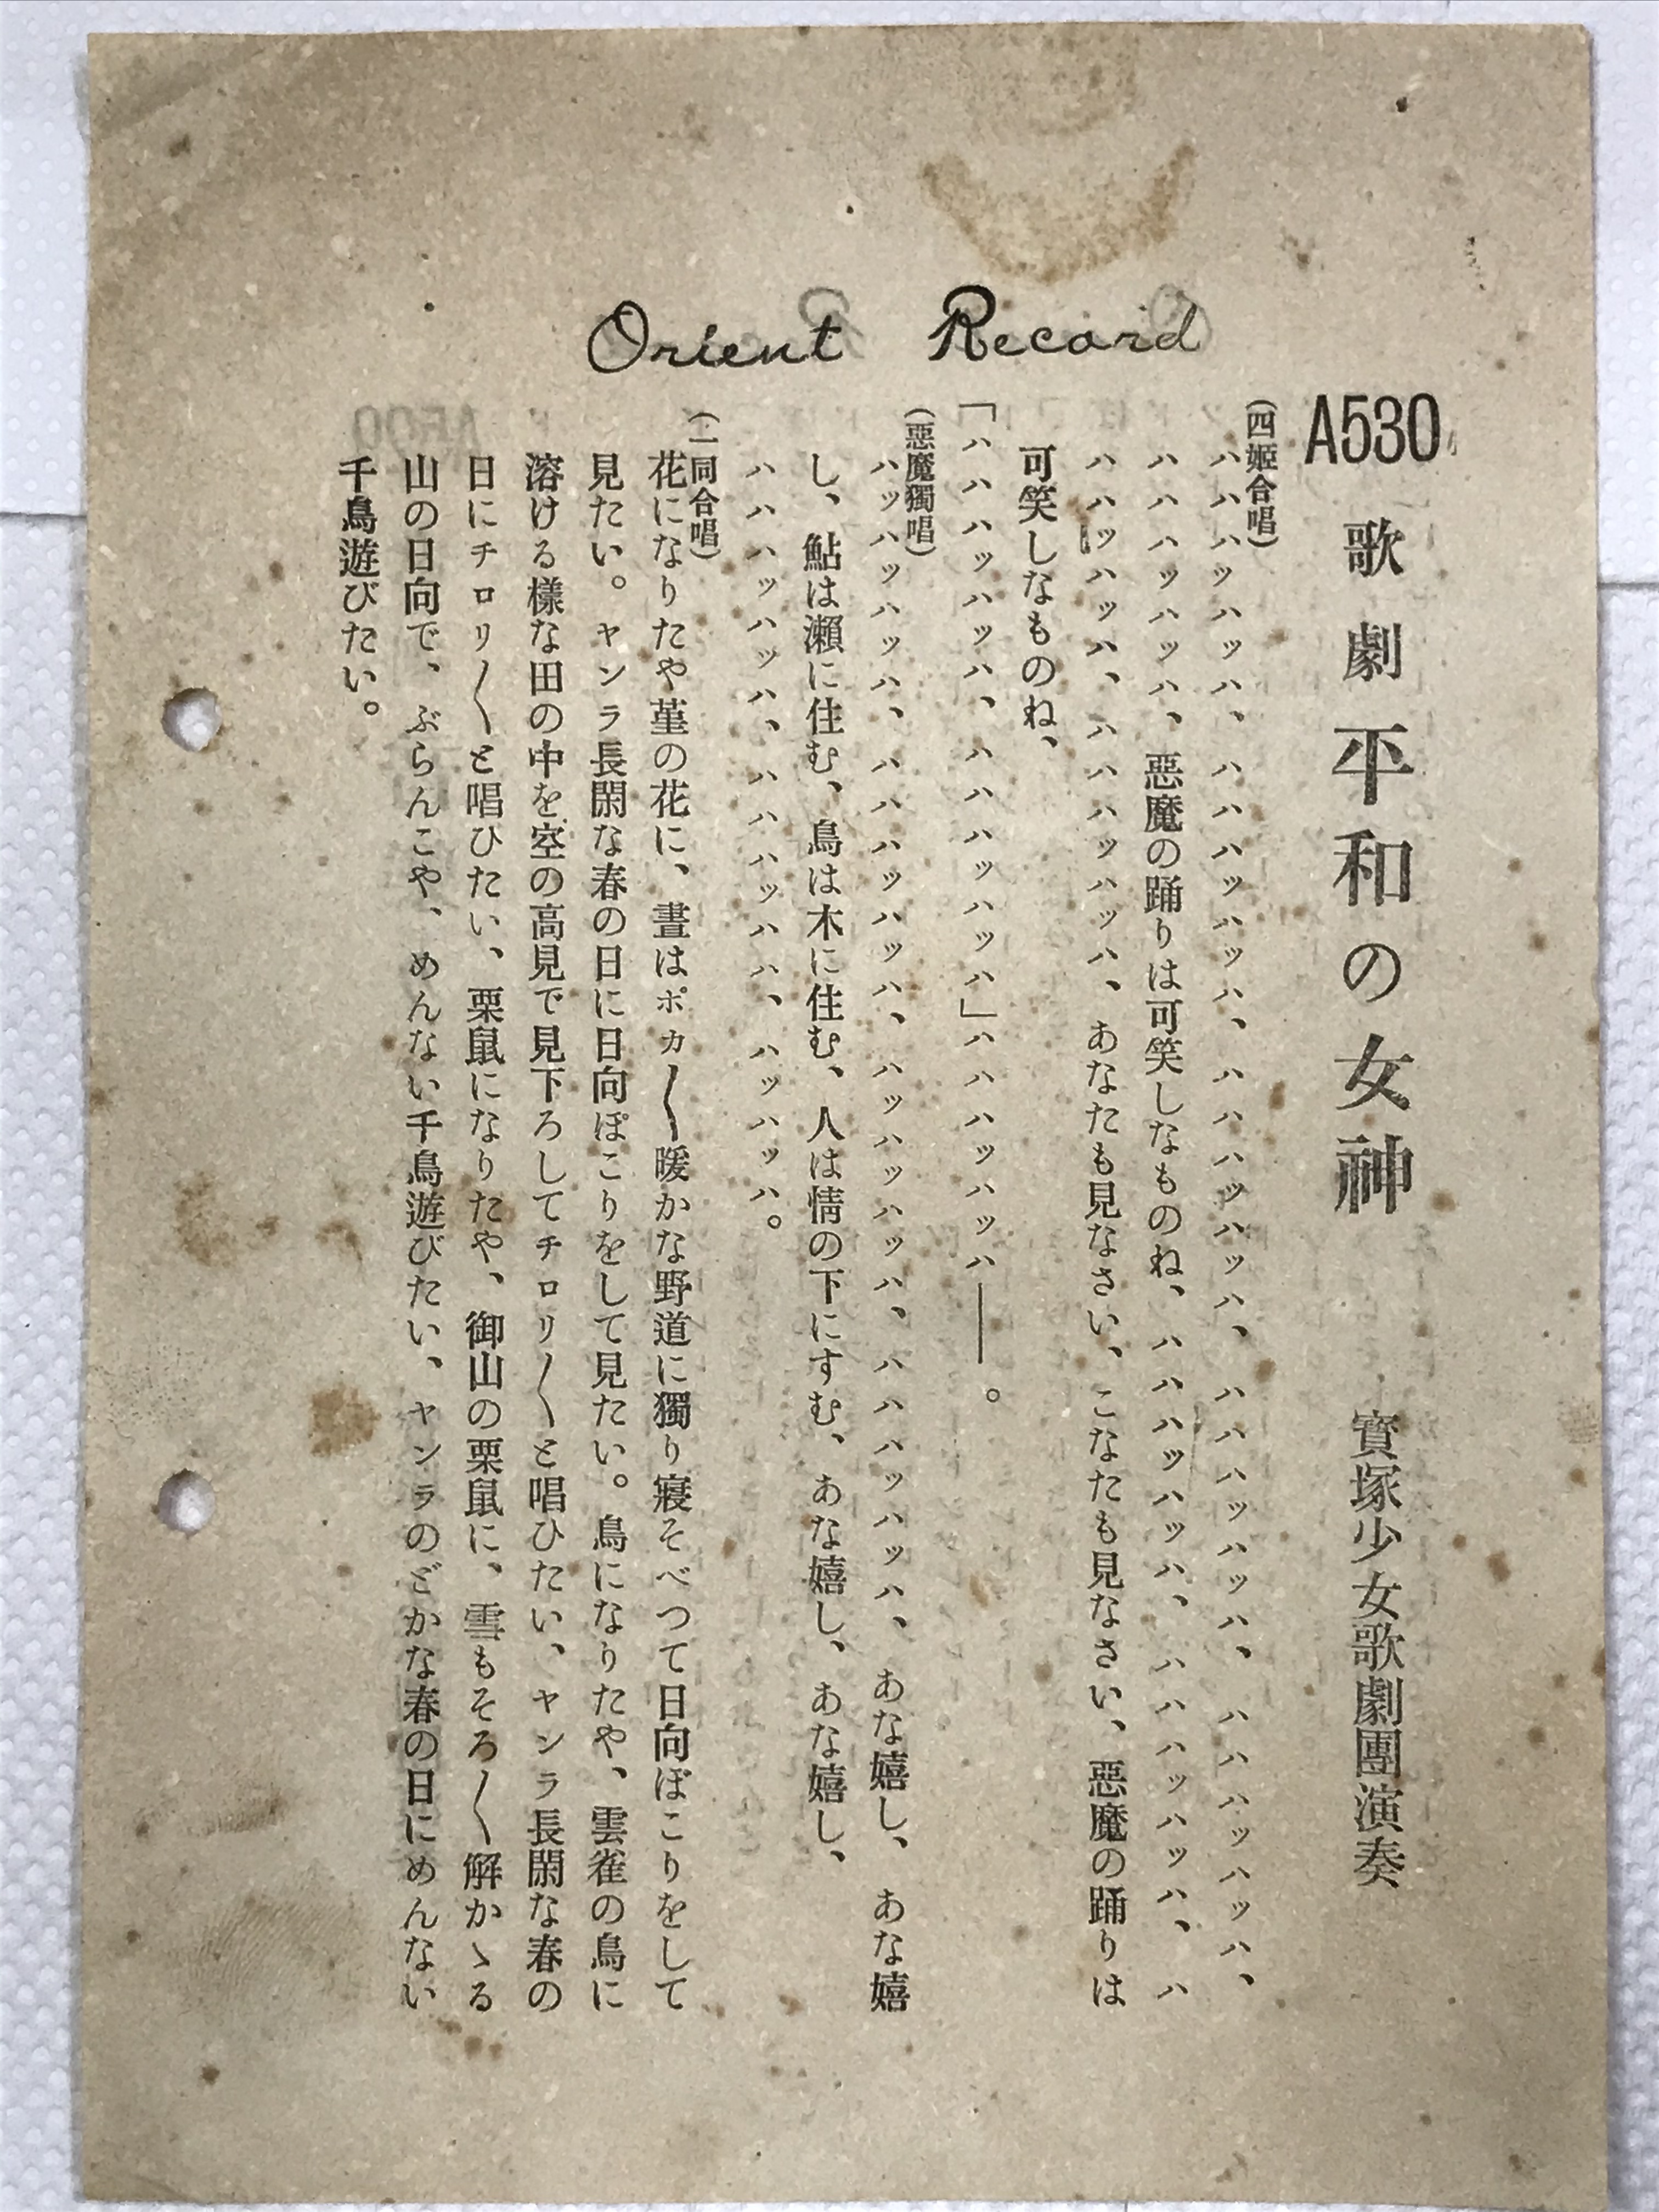 Orient Record
A530
歌劇 平和の女神 寳塚少女歌劇團演奏
（四姬合唱）
ハハハッハッハッハ、ハハハッハッハッハ、ハハハッハッハ、ハハハッハッハ、ハハハッハッハ、
ハハハッハッハ、惡魔の踊りは可笑しなものね、ハハハッハッハ、ハハハッハッハ、ハ
ハハッハッハ、ハハハッハッハ、あなたも見なさい、こなたも見なさい、惡魔の踊りは
可笑しなものね、
「ハハハッハッハ、ハハハッハッハ」ハハハッハッハ――。
（惡魔獨唱）
ハッハッハッハ、ハハハッハッハ、ハッハッハッハ、ハハハッハッハ、あな嬉し、あな嬉
し、鮎は瀬に住む、鳥は木に住む、人は情の下にすむ、あな嬉し、あな嬉し、
ハハハッハッハ、ハハハッハハ、ハッハッハ。
（一同合唱）
花になりたや菫の花に、晝はポカ〳〵暖かな野道に獨り寢そべつて日向ぼこりをして
見たい。ヤンラ長閑な春の日に日向ぽこりをして見たい。鳥になりたや、雲雀の鳥に
溶ける樣な田の中を空の高見で見下ろしてチロリ〳〵と唱ひたい、ヤンラ長閑な春の
日にチロリ〳〵と唱ひたい、栗鼠になりたや、御山の栗鼠に、雪もそろ〳〵解かゝる
山の日向で、ぶらんこや、めんない千鳥遊びたい、ヤンラのどかな春の日にめんない
千鳥遊びたい。